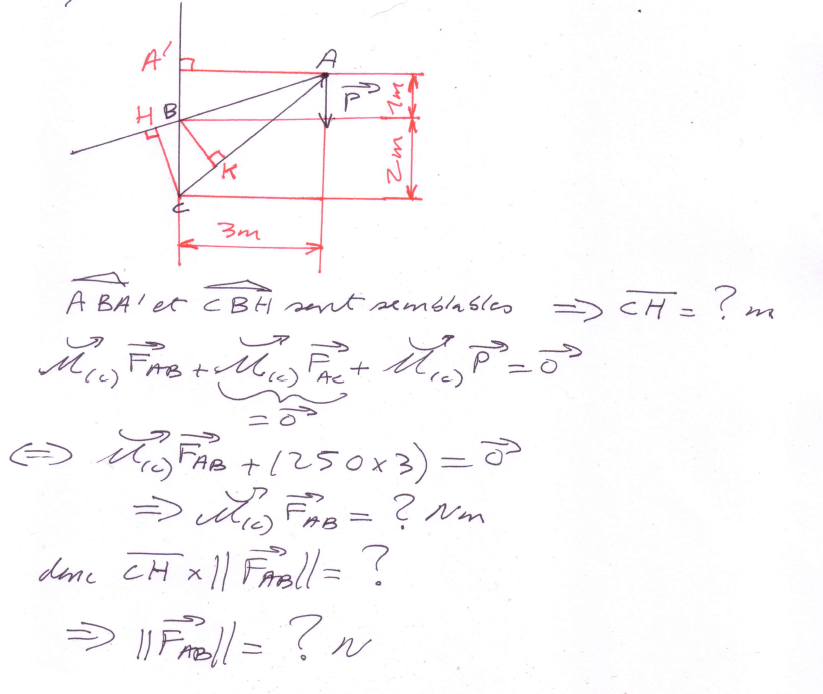 A'
A
P⃗
1m
H
B
K
2m
C
3m
ABA' et CBH sont semblables ⇒ CH = ? m
M(c) F_AB + M(c) F_AC + M(c) P = 0
= 0
⇔ M(c) F_AB + (250×3) = 0
⇒ M(c) F_AB = ? Nm
donc CH × ||F_AB|| = ?
⇒ ||F_AB|| = ? N